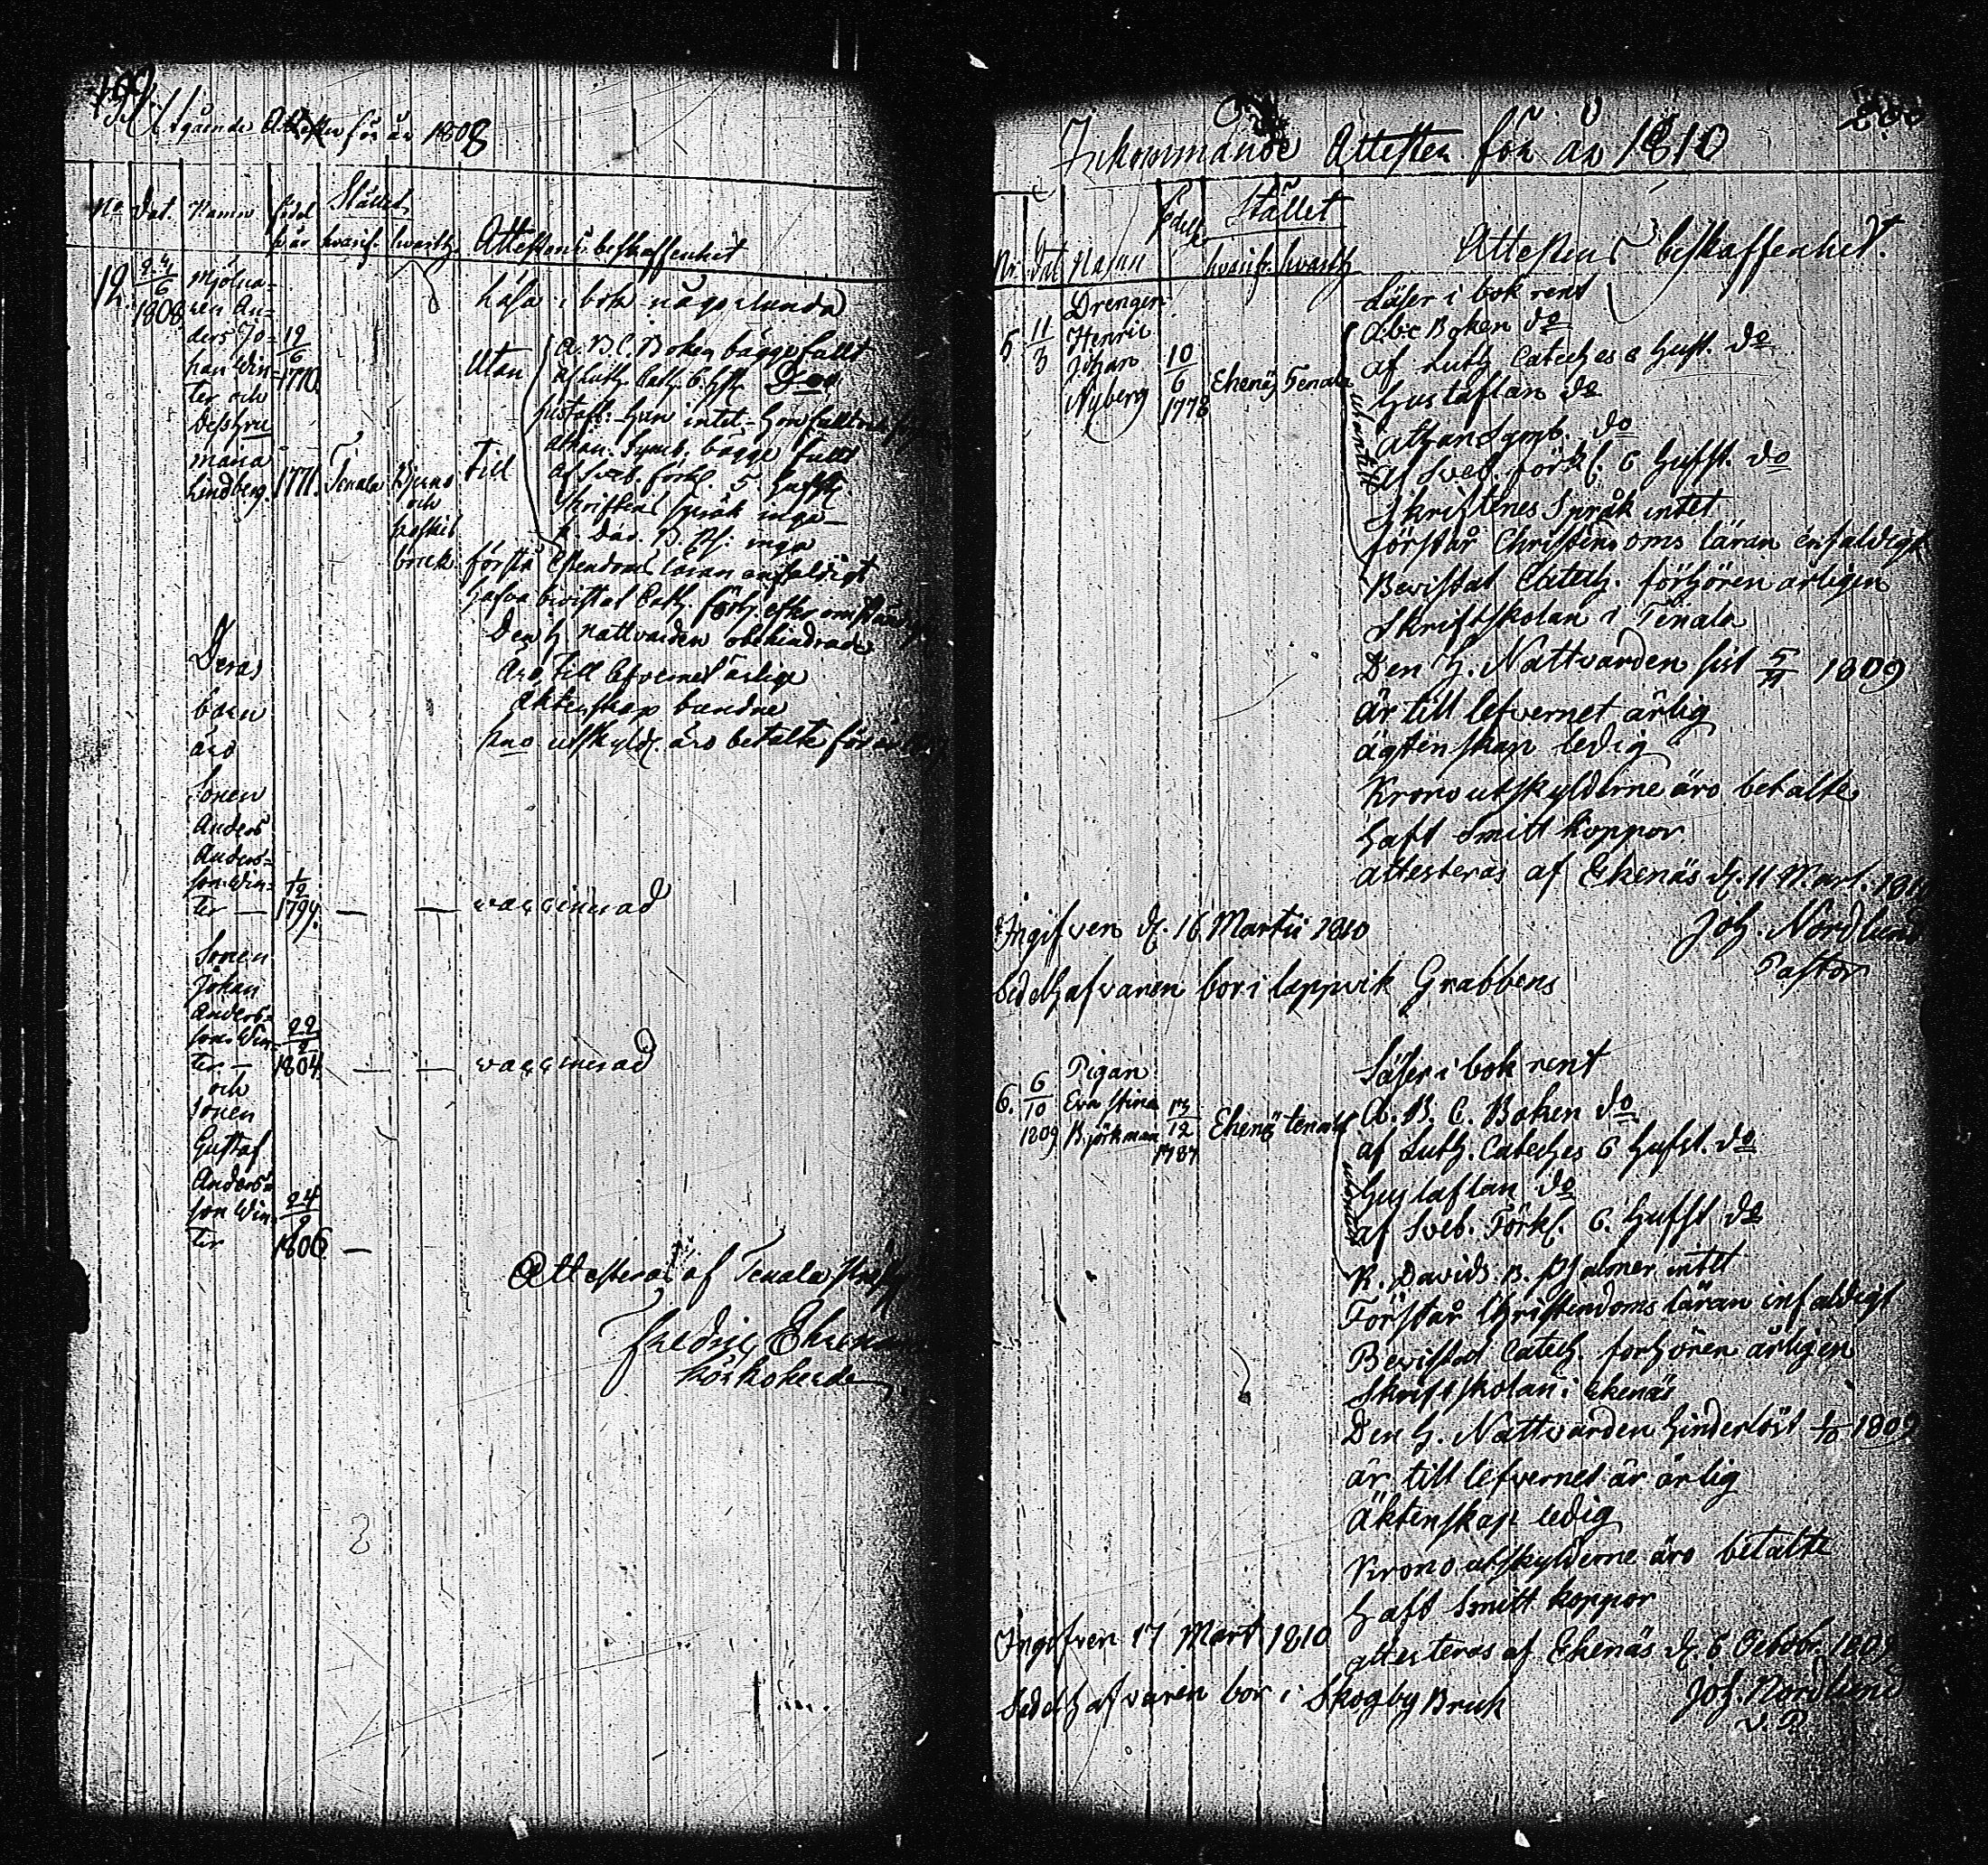 199
Utgående Attester för år 1808
No Dat. Namn födel Stället
hvarif. hvarth. Attestens beskaffenhet
12 24/6 1808
Mjölna-
ren An-
ders Jo-
han Win-
ter och
Dess hru
Maria
Lindberg.
19/6 1770
1771. Tenala Bjerno
och
Koskis
bruk
Läsa i bok någorlunda
Utan
Till
A. B. C. Boken bägge fullt
af Luth. Cath. 6. hfst. Do
hustafl. han intet. hon fullt
Athan. Symb. bägge fullt
af Sveb. förkl. 5. hufst.
Skriftens språk inga
K. Dav. B. Ps. inga
förstå Christendoms läran enfaldigt
hafva bevistat Cath. förh. efter omstän
Den H. Nattvarden obehindrade
Äro till lefvernet ärlige
Äktenskap bundne
Krono utskyld. äro betalte för
Deras
barn
äro
Sonen
Anders
Anders-
son Win-
ter — 1/12 1799. — — vaccinerad
Sonen
Johan
Anders-
son Win-
ter — 22/2 1804 — — vaccinerad
och
Sonen
Gustaf
Anders-
son Win-
ter 24/9 1806. —
Attesteras af Tenala
Fredric
Körkoherde
200
Inkommande Attester för år 1810
Nr. Dat Namn födelse Stället
hvarifr. hvarth Attestens beskaffenhet.
5. 11/3
Drengen
Henric
Johan
Nyberg
10/6 1778
Ekenäs Tenala
utantill
Läser i bok rent
Abc Boken do
af Luth. Cateches 6 hufst. do
hustaflan do
Athan Symb. do
af Sveb. förkl. 6 hufst. do
Skriftenes Språk intet
förstår Christendoms läran enfaldigt
Bevistat Catech. förhören årligen
Skriftskolan i Tenala
Den H. Nattvarden sist 5/11 1809
är till lefvernet ärlig
ägtenskap ledig
Krono utskylderne äro betalte
haft Smitt koppor
attesteras af Ekenäs d. 11 Mart. 1810
Joh. Nordlund
Pastor
Ingifven d. 16 Martii 1810
Sedelhafvaren bor i Lappvik Grabbens
6. 6/10 1809
Pigan
Eva Stina
Björkman
13/12 1787
Ekenäs Tenala
utantill
Läser i bok rent
A. B. C. Boken do
af Luth. Cateches 6 hufst. do
hustaflan do
af Sveb. Förkl. 6. hufst do
K. Davids B. Psalmer intet
Förstår Christendoms läran enfaldigt
Bevistat Catech. förhören årligen
Skriftskolan i Ekenäs
Den H. Nattvarden hinderlöst 1/10 1809
är till lefvernet är ärlig
Äktenskap ledig
Krono utskylderne äro betalte
haft Smitt koppor
attesteras af Ekenäs d. 6 Octobr. 1809
Joh. Nordlund
V. P.
Ingifven 17 Mart 1810
Sedelhafvaren bor i Skogby Bruk